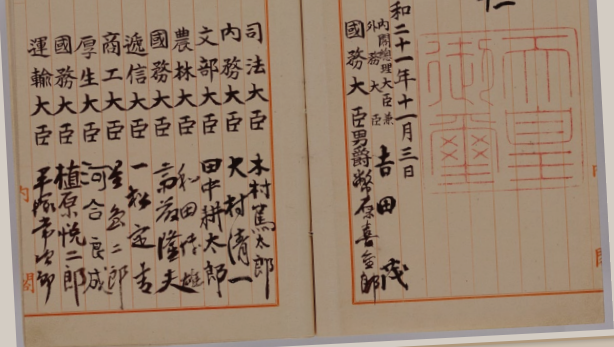 十二
和二十一年十一月三日
内閣總理大臣兼
外務大臣 吉田茂
國務大臣男爵幣原喜重郎
司法大臣 木村篤太郎
内務大臣 大村清一
文部大臣 田中耕太郎
農林大臣 和田博雄
國務大臣 斎藤隆夫
遞信大臣 一松定吉
商工大臣 星島二郎
厚生大臣 河合良成
國務大臣 植原悦二郎
運輸大臣 平塚常次郎
天皇
御璽
内
閣